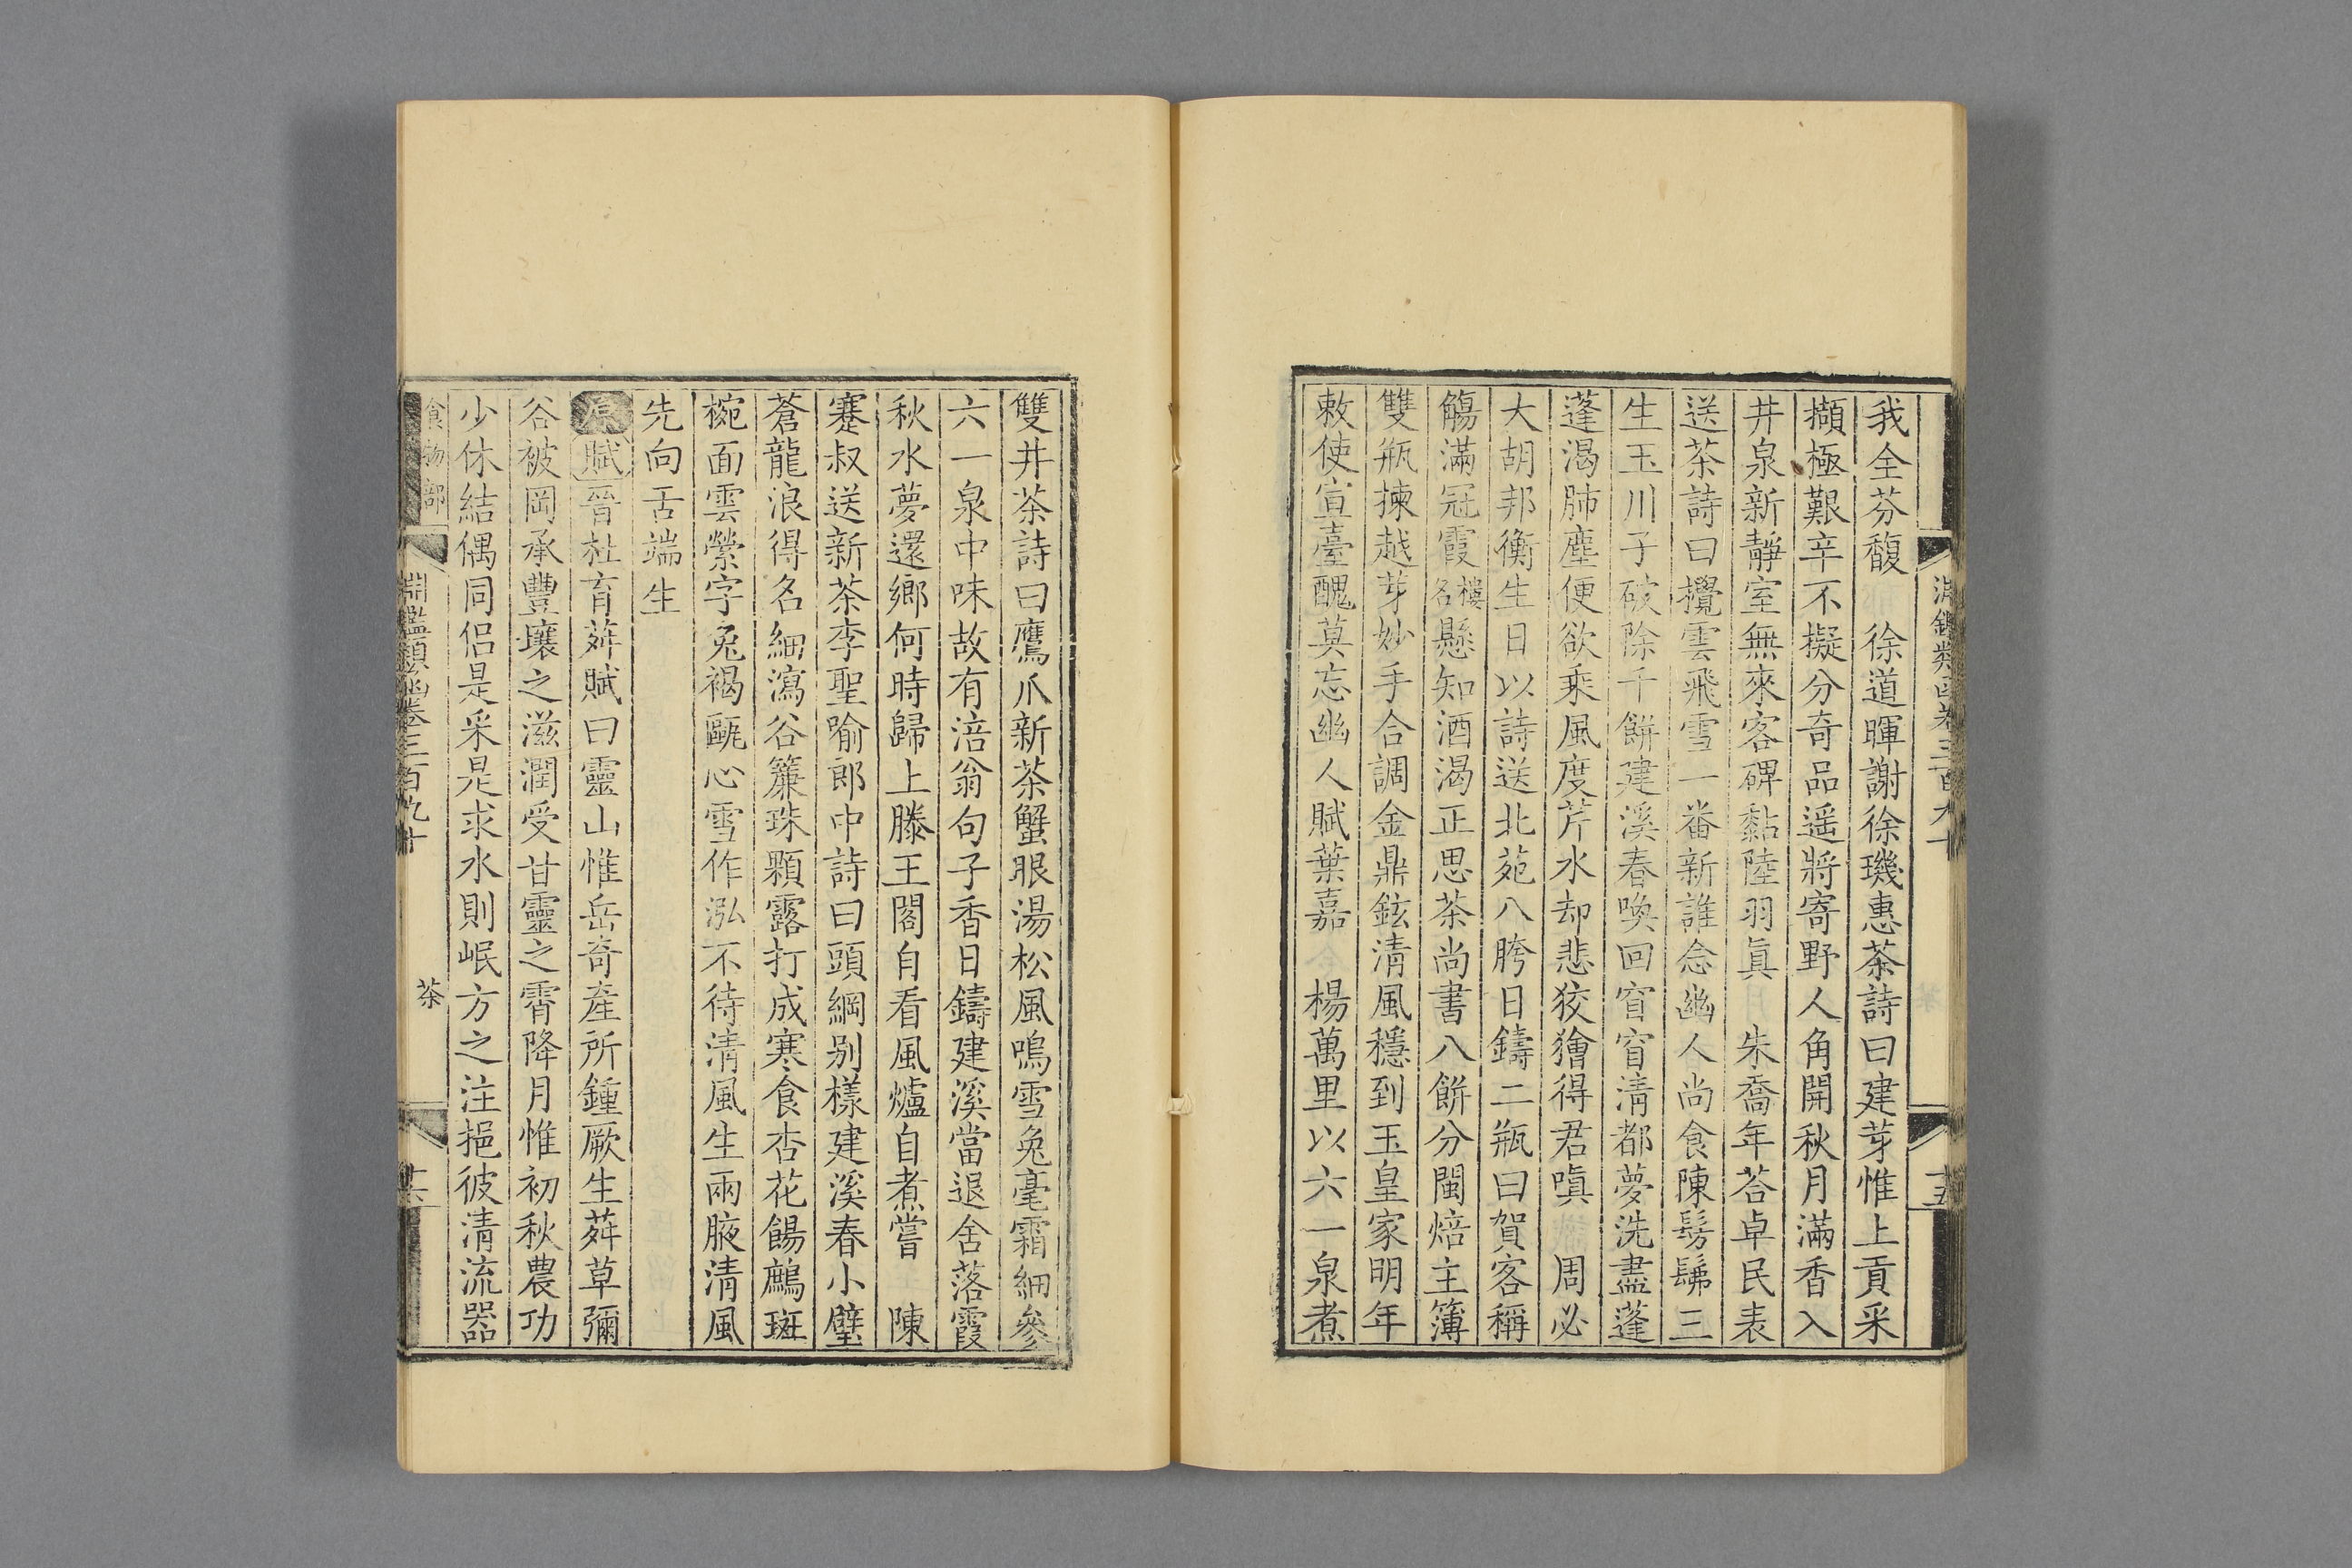 淵鑑類函卷三百九十
十五
我全芬馥　徐道暉謝徐璣惠茶詩曰建芽惟上貢采
擷極艱辛不擬分奇品遥將寄野人角開秋月滿香入
井泉新靜室無來客碑黏陸羽眞　朱喬年荅卓民表
送茶詩曰攪雲飛雪一番新誰念幽人尚食陳髣髴三
生玉川子破除千餅建溪春喚回窅窅清都夢洗盡蓬
蓬渴肺塵便欲乘風度芹水却悲狡獪得君嗔　周必
大胡邦衡生日以詩送北苑八胯日鑄二瓶曰賀客稱
觴滿冠霞樓名懸知酒渴正思茶尚書八餅分閩焙主簿
雙瓶揀越芽妙手合調金鼎鉉清風穩到玉皇家明年
敕使宣臺醜莫忘幽人賦葉嘉　楊萬里以六一泉煮
雙井茶詩曰鷹爪新茶蟹眼湯松風鳴雪兔毫霜細參
六一泉中味故有涪翁句子香日鑄建溪當退舍落霞
秋水夢還鄉何時歸上滕王閣自看風爐自煮嘗　陳
蹇叔送新茶李聖喻郎中詩曰頭綱别樣建溪春小璧
蒼龍浪得名細瀉谷簾珠顆露打成寒食杏花餳鷓斑
椀面雲縈字兔褐甌心雪作泓不待清風生兩腋清風
先向舌端生
原賦晉杜育荈賦曰靈山惟岳奇産所鍾厥生荈草彌
谷被岡承豐壤之滋潤受甘靈之霄降月惟初秋農功
少休結偶同侣是采是求水則岷方之注挹彼清流器
食物部
淵鑑類函卷三百九十
茶
十六